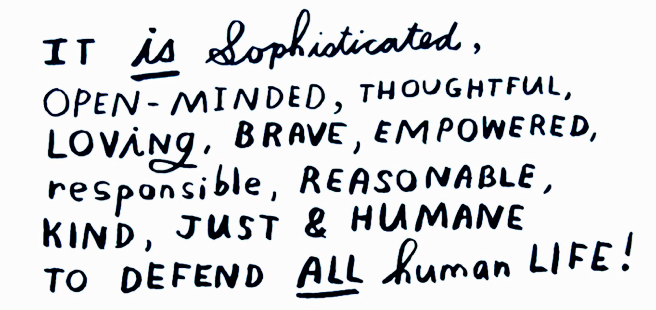 IT is Sophisticated,
OPEN-MINDED, THOUGHTFUL,
LOVING, BRAVE, EMPOWERED,
responsible, REASONABLE,
KIND, JUST & HUMANE
TO DEFEND ALL human LIFE!